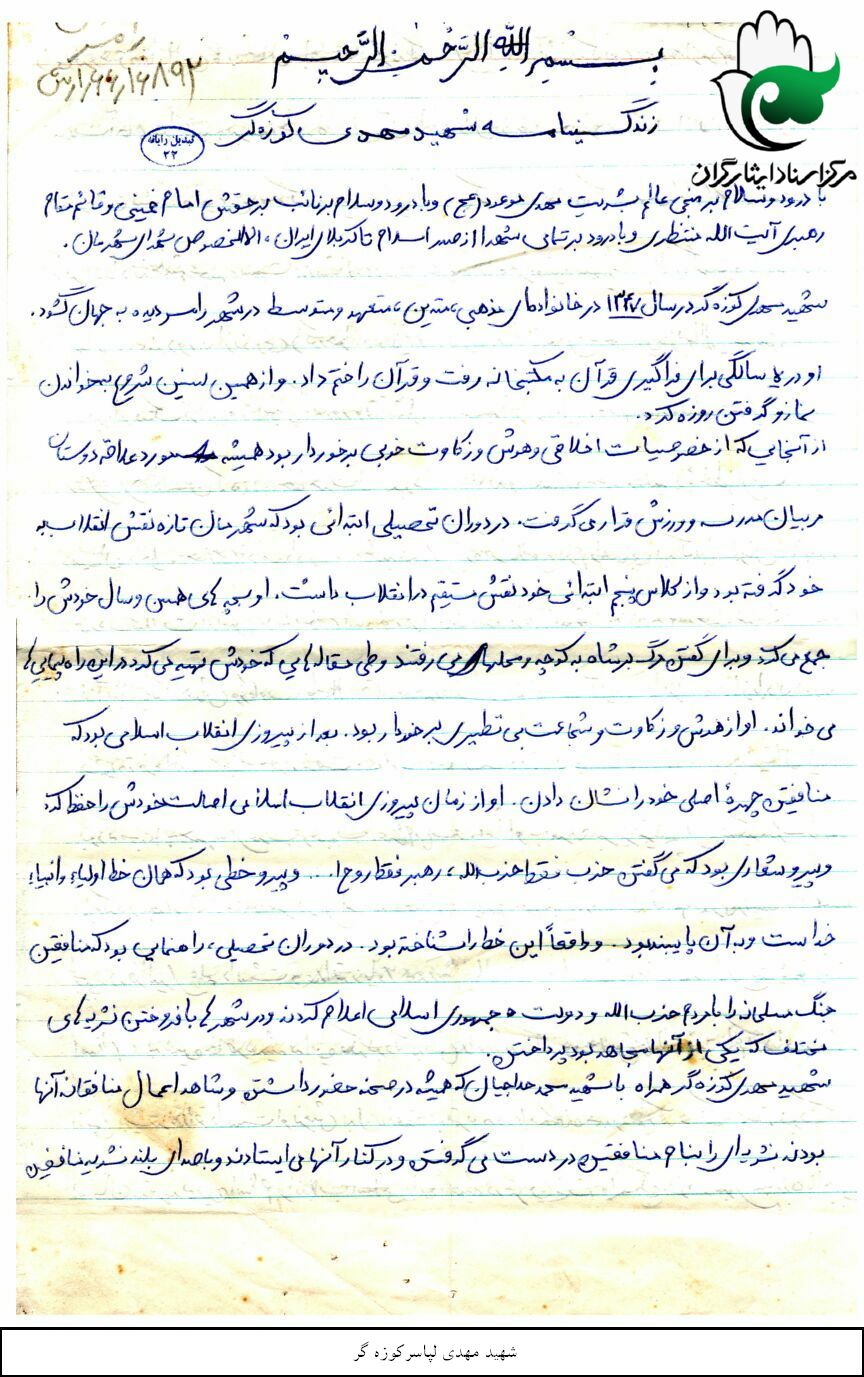 رامسر
بِسْمِ اللهِ الرَّحْمنِ الرَّحیمِ
زندگینامه شهید مهدی کوزه گر
تبدیل رایانه
۲۲
مرکز اسناد ایثارگران
با درود و سلام بر منجی عالم بشریت مهدی موعود (عج) و با درود و سلام بر نائب بر حقش امام خمینی و قائم مقام
رهبری آیت الله منتظری و با درود بر تمامی شهدا از صدر اسلام تا کربلای ایران ، الاالخصوص شهدای شهرمان .
شهید مهدی کوزه گر در سال ۱۳۴۷ در خانواده‌ای مذهبی ، متدین ، متعهد و متوسط در شهر رامسر دیده به جهان گشود .
او در ۵ سالگی برای فراگیری قرآن به مکتبخانه رفت و قرآن را ختم داد . و از همین سنین شروع بخواندن
نماز و گرفتن روزه کرد .
از آنجایی که از خصوصیات اخلاقی و هوش و زکاوت خوبی برخوردار بود همیشه مورد علاقه دوستان
مربیان مدرسه و ورزش قرار می گرفت . در دوران تحصیلی ابتدائی بود که شهرمان تازه نقش انقلاب به
خود گرفته بود و از کلاس پنجم ابتدائی خود نقش مستقیم در انقلاب داشت . او بچه های همسن و سال خودش را
جمع می کرد و برای گفتن مرگ بر شاه به کوچه و محلها می رفتند و طی مقاله هایی که خودش تهیه می کرد در این راه پیمایی ها
می خواند . او از هوش و زکاوت و شجاعت بی نظیری برخوردار بود . بعد از پیروزی انقلاب اسلامی بود که
منافقین چهرهٔ اصلی خود را نشان دادن . او از زمان پیروزی انقلاب اسلامی اصالت خودش را حفظ کرد
و پیرو شعاری بود که می گفتن حزب فقط حزب الله ، رهبر فقط روح ا... و پیرو خطی بود که همان خط اولیاء و انبیاء
خداست و به آن پایبند بود . و واقعاً این خط را شناخته بود . در دوران تحصیلی ، راهنمایی بود که منافقین
جنگ مسلحانه را با مردم حزب الله و دولت جمهوری اسلامی اعلام کردند و در شهر ها با فروختن نشریه های
مختلف که یکی از آنها مجاهد بود پرداختن .
شهید مهدی کوزه گر همراه با شهید محمد حاجیان که همیشه در صحنه حضور داشتن و شاهد اعمال منافقانه آنها
بودند نشریه‌ای را بنام منافقین در دست می گرفتن و در کنار آنها می ایستادند و با صدای بلند نشریه منافقین
شهید مهدی لپاسرکوزه گر